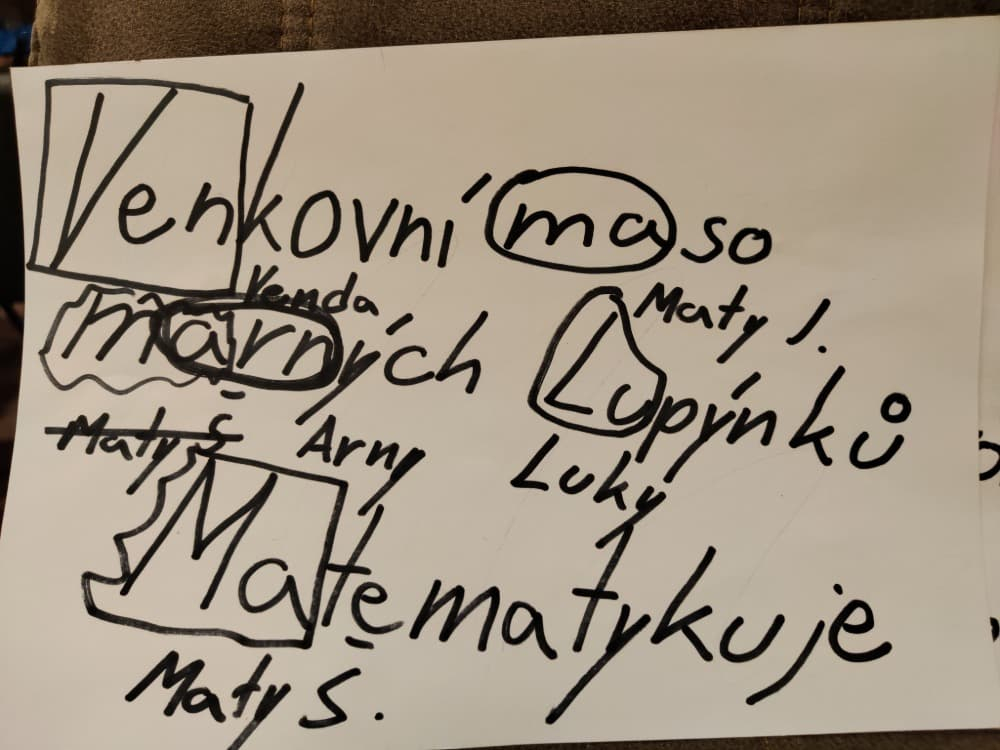 Venkovní maso
Venda Maty J.
márných Lupýnků
Maty Š Arny Luky
Matematykuje
Maty S.